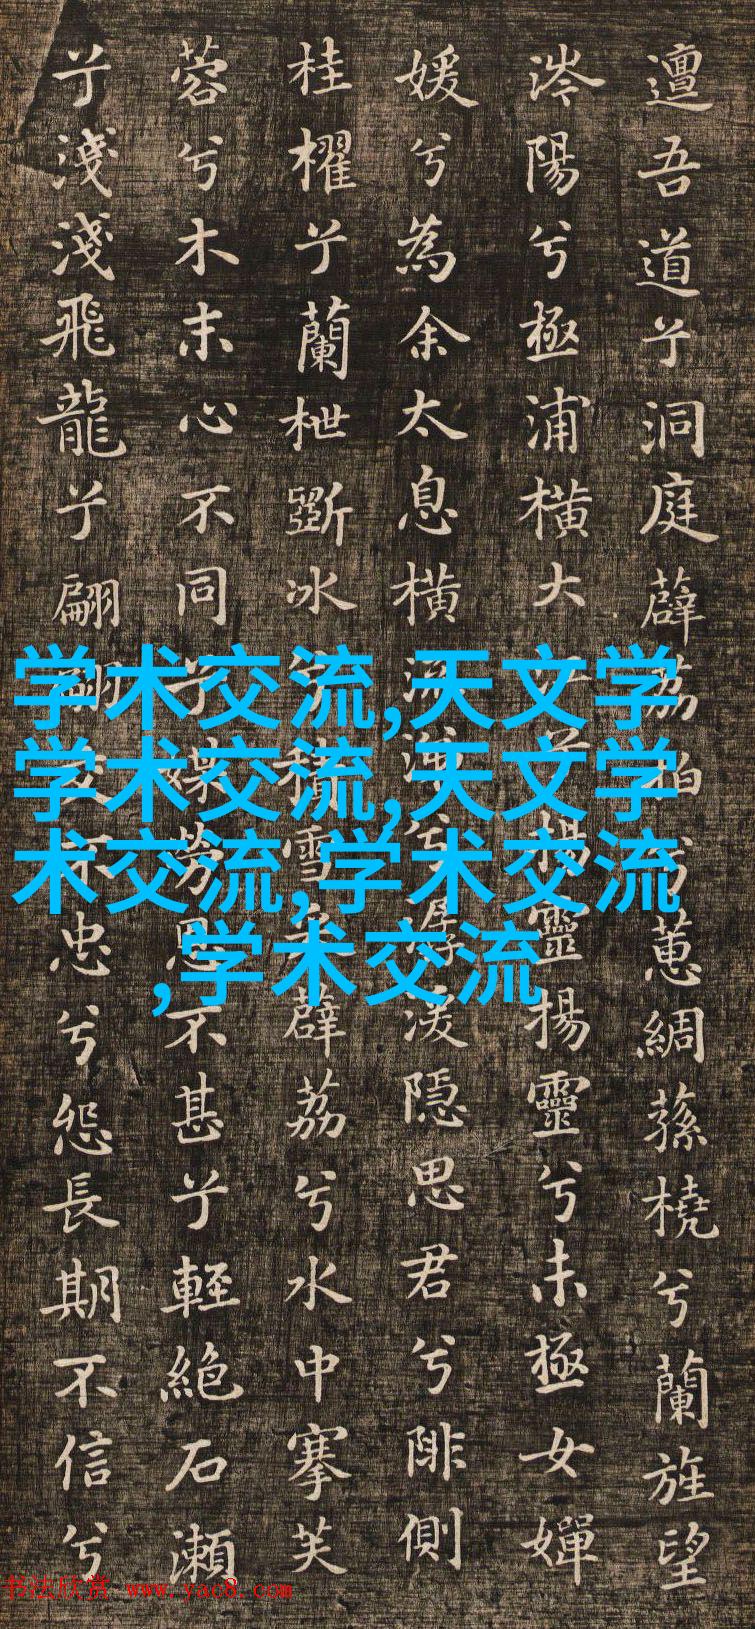 邅吾道兮洞庭薜荔拍兮蕙綢蓀橈兮蘭旌望
涔陽兮極浦橫大江兮揚靈揚靈兮未極女嬋
媛兮為余太息橫流涕兮潺湲隱思君兮陫側
桂櫂兮蘭枻斲冰兮積雪采薜荔兮水中搴芙
蓉兮木末心不同兮媒勞恩不甚兮輕絕石瀨
兮淺淺飛龍兮翩翩交不忠兮怨長期不信兮
学术交流,天文学
学术交流,天文学
术交流,学术交流
,学术交流
书法欣赏 www.yac8.com